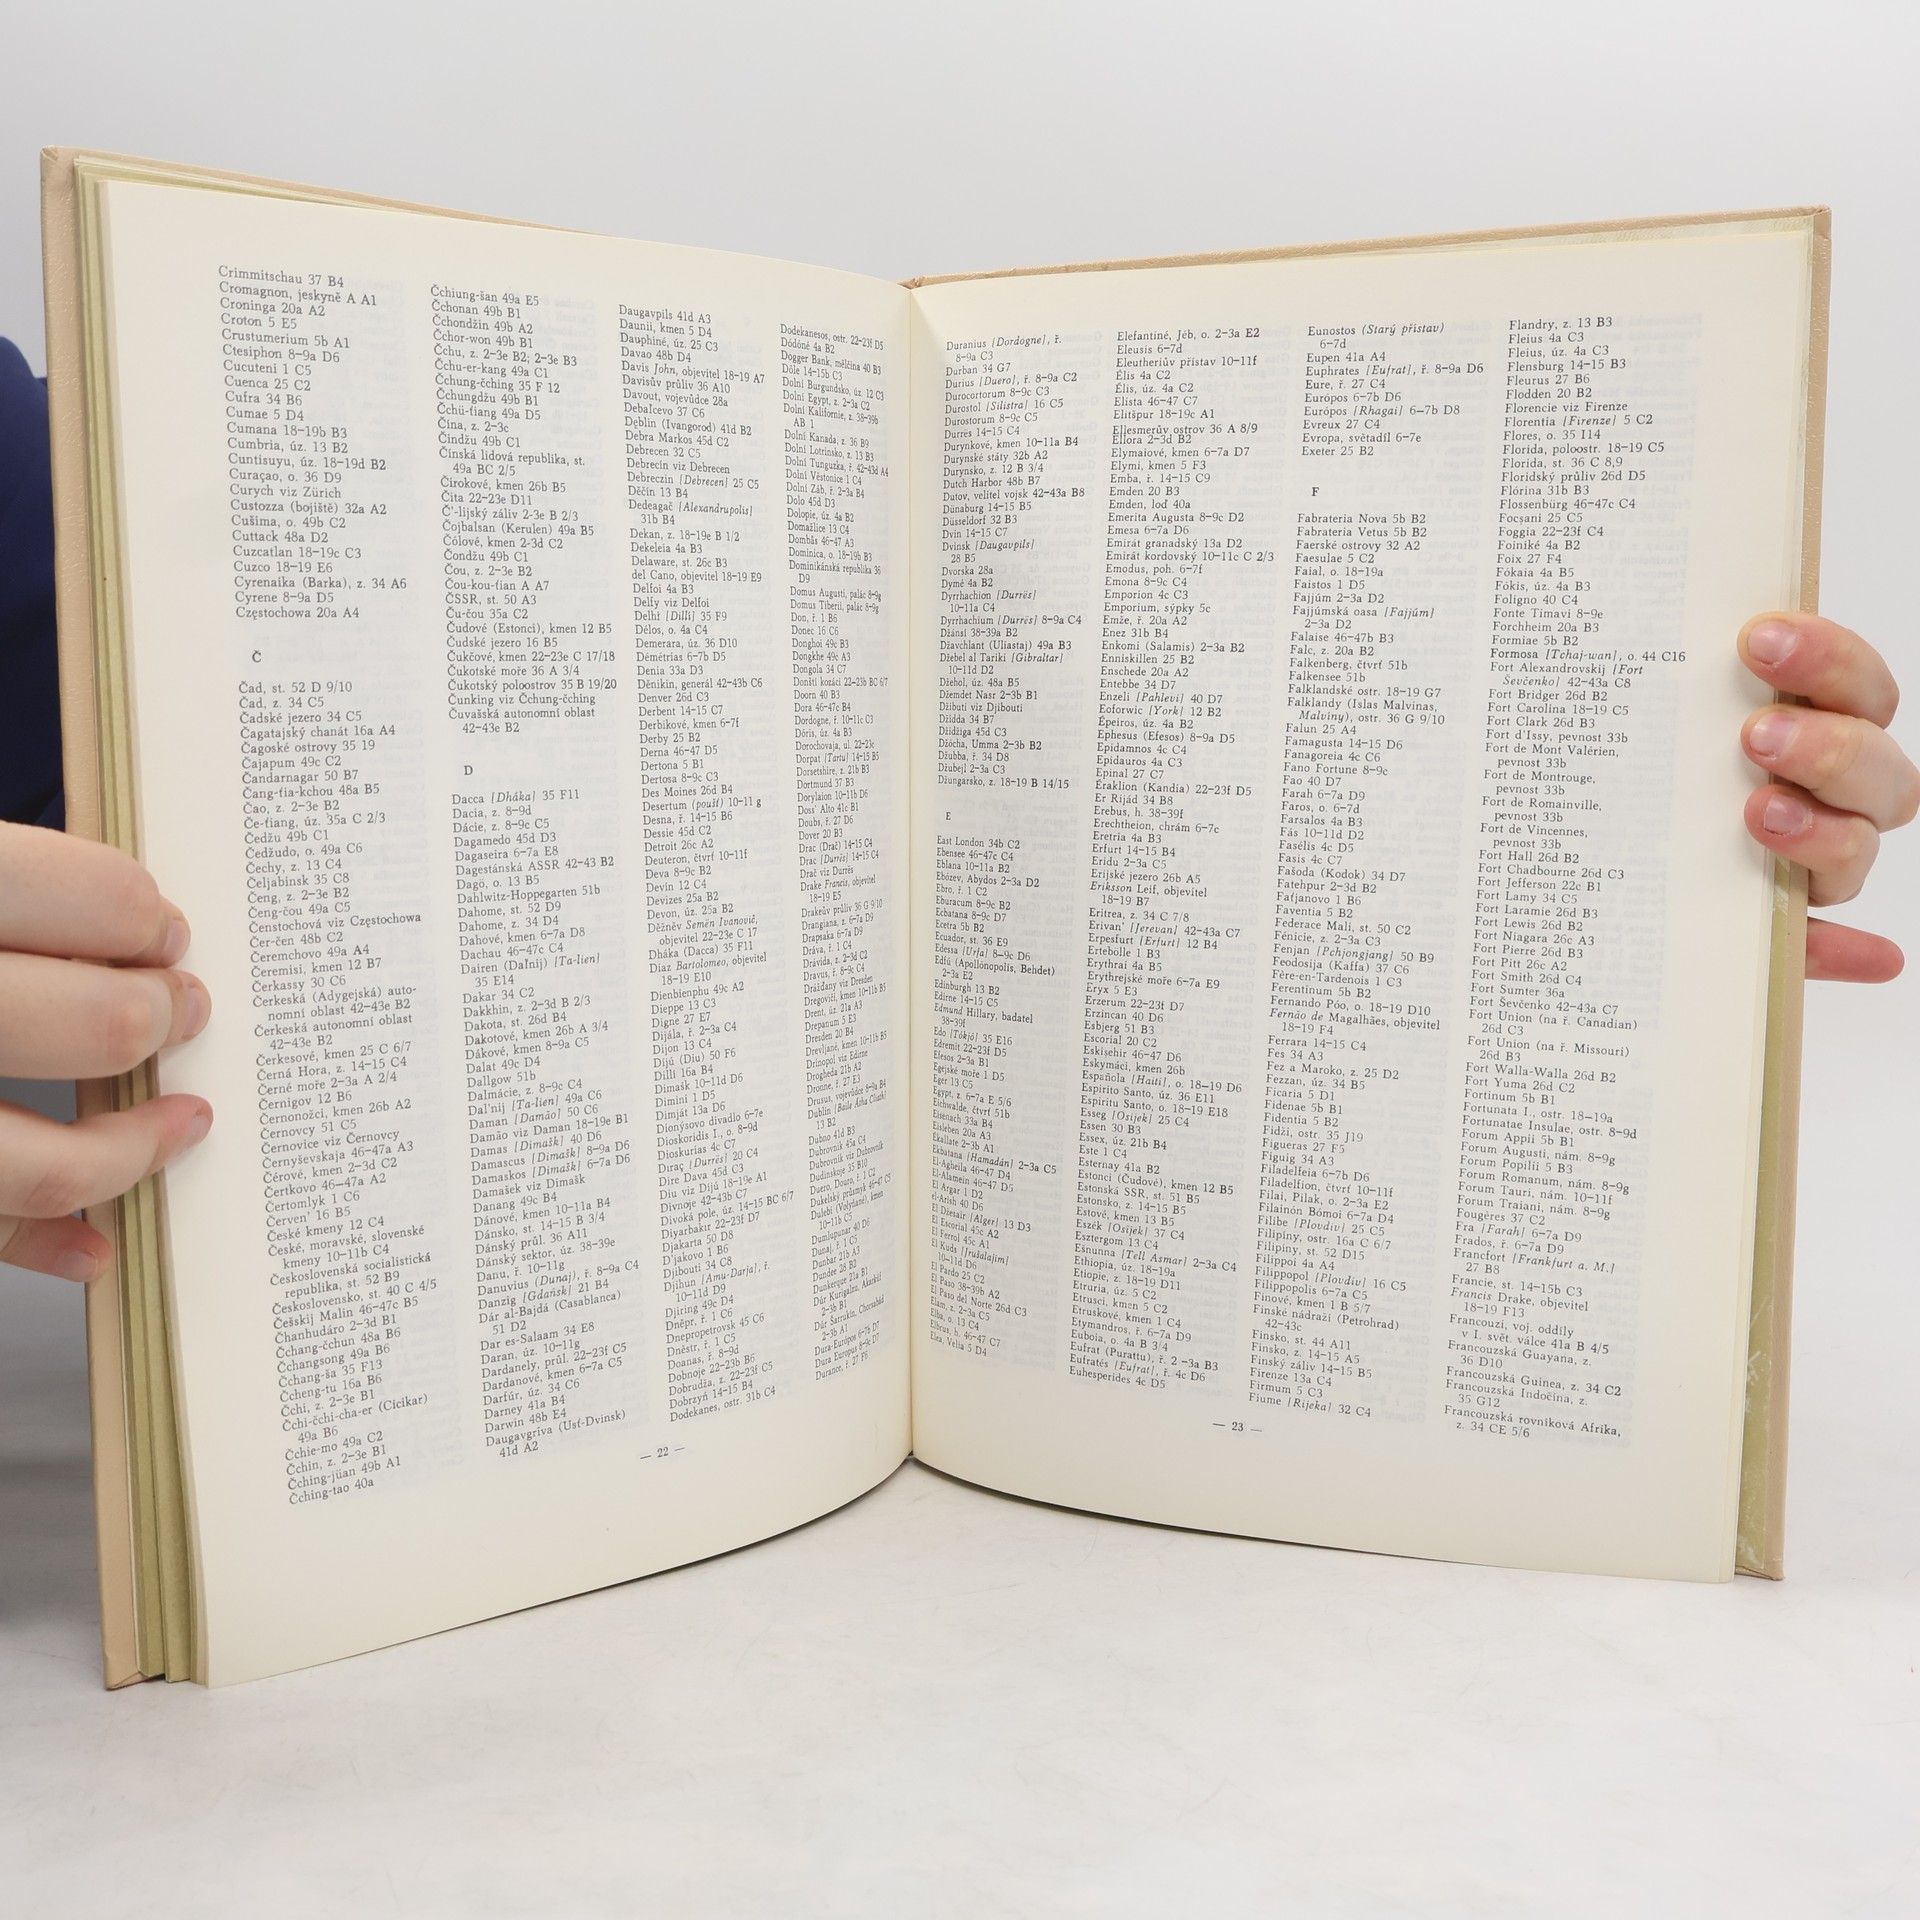 Crimmitschau 37 B4
Cromagnon, jeskyně A A1
Croninga 20a A2
Croton 5 E5
Crustumerium 5b A1
Ctesiphon 8–9a D6
Cucuteni 1 C5
Cuenca 25 C2
Cufra 34 B6
Cumae 5 D4
Cumana 18–19b B3
Cumbria, úz. 13 B2
Cuntisuyu, úz. 18–19d B2
Curaçao, o. 36 D9
Curych viz Zürich
Custozza (bojiště) 32a A2
Cušima, o. 49b C2
Cuttack 48a D2
Cuzcatlan 18–19c C3
Cuzco 18–19 E6
Cyrenaika (Barka), z. 34 A6
Cyrene 8–9a D5
Częstochowa 20a A4
Č
Čad, st. 52 D 9/10
Čad, z. 34 C5
Čadské jezero 34 C5
Čagatajský chanát 16a A4
Čagoské ostrovy 35 19
Čajapum 49c C2
Čandarnagar 50 B7
Čang-ťia-kchou 48a B5
Čao, z. 2–3e B2
Če-ťiang, úz. 35a C 2/3
Čedžu 49b C1
Čedžudo, o. 49a C6
Čechy, z. 13 C4
Čeljabinsk 35 C8
Čeng, z. 2–3e B2
Čeng-čou 49a C5
Čenstochová viz Częstochowa
Čer-čen 48b C2
Čeremchovo 49a A4
Čeremisi, kmen 12 B7
Čerkassy 30 C6
Čerkeská (Adygejská) auto-
nomní oblast 42–43e B2
Čerkeská autonomní oblast
42–43e B2
Čerkesové, kmen 25 C 6/7
Černá Hora, z. 14–15 C4
Černé moře 2–3a A 2/4
Černigov 12 B6
Černonožci, kmen 26b A2
Černovcy 51 C5
Černovice viz Černovcy
Černyševskaja 46–47a A3
Čérové, kmen 2–3d C2
Čertkovo 46–47a A2
Čertomlyk 1 C6
Červen' 16 B5
České kmeny 12 C4
České, moravské, slovenské
kmeny 10–11b C4
Československá socialistická
republika, st. 52 B9
Československo, st. 40 C 4/5
Češskij Malin 46–47c B5
Čhanhudáro 2–3d B1
Čchang-čchun 48a B6
Čchangsong 49a B6
Čchang-ša 35 F13
Čcheng-tu 16a B6
Čchi, z. 2–3e B1
Čchi-čchi-cha-er (Cicikar)
49a B6
Čchie-mo 49a C2
Čchin, z. 2–3e B1
Čching-jüan 49b A1
Čching-tao 40a
Čchiung-šan 49a E5
Čchonan 49b B1
Čchondžin 49b A2
Čchor-won 49b B1
Čchu, z. 2–3e B2; 2–3e B3
Čchu-er-kang 49a C1
Čchung-čching 35 F 12
Čchungdžu 49b B1
Čchü-ťiang 49a D5
Čína, z. 2–3c
Čindžu 49b C1
Čínská lidová republika, st.
49a BC 2/5
Čirokové, kmen 26b B5
Čita 22–23e D11
Č'-lijský záliv 2–3e B 2/3
Čojbalsan (Kerulen) 49a B5
Čólové, kmen 2–3d C2
Čondžu 49b C1
Čou, z. 2–3e B2
Čou-kou-tian A A7
ČSSR, st. 50 A3
Ču-čou 35a C2
Čudové (Estonci), kmen 12 B5
Čudské jezero 16 B5
Čukčové, kmen 22–23e C 17/18
Čukotské moře 36 A 3/4
Čukotský poloostrov 35 B 19/20
Čunking viz Čchung-čching
Čuvašská autonomní oblast
42–43e B2
D
Dacca [Dháka] 35 F11
Dacia, z. 8–9d
Dácie, z. 8–9c C5
Dagamedo 45d D3
Dagaseira 6–7a E8
Dagestánská ASSR 42–43 B2
Dagö, o. 13 B5
Dahlwitz-Hoppegarten 51b
Dahome, st. 52 D9
Dahome, z. 34 D4
Dahové, kmen 6–7a D8
Dachau 46–47c C4
Dairen (Daľnij) [Ta-lien]
35 E14
Dakar 34 C2
Dakkhin, z. 2–3d B 2/3
Dakota, st. 26d B4
Dakotové, kmen 26b A 3/4
Dákové, kmen 8–9a C5
Dalat 49c D4
Dallgow 51b
Dalmácie, z. 8–9c C4
Dal'nij [Ta-lien] 49a C6
Daman [Damão] 50 C6
Damão viz Daman 18–19e B1
Damas [Dimašk] 40 D6
Damascus [Dimašk] 8–9a D6
Damaskos [Dimašk] 6–7a D6
Damašek viz Dimašk
Danang 49c B4
Dánové, kmen 10–11a B4
Dánsko, st. 14–15 B 3/4
Dánský průl. 36 A11
Dánský sektor, úz. 38–39e
Danu, ř. 10–11g
Danuvius (Dunaj), ř. 8–9a C4
Danzig [Gdaňsk] 21 B4
Dár al-Bajdá (Casablanca)
51 D2
Dar es-Salaam 34 E8
Daran, úz. 10–11g
Dardanely, průl. 22–23f C5
Dardanové, kmen 6–7a C5
Darfúr, úz. 34 C6
Darney 41a B4
Darwin 48b E4
Daugavgriva (Usť-Dvinsk)
41d A2
Daugavpils 41d A3
Daunii, kmen 5 D4
Dauphiné, úz. 25 C3
Davao 48b D4
Davis John, objevitel 18–19 A7
Davisův průliv 36 A10
Davout, vojevůdce 28a
Debaľcevo 37 C6
Dęblin (Ivangorod) 41d B2
Debra Markos 45d C2
Debrecen 32 C5
Debrecín viz Debrecen
Debreczin [Debrecen] 25 C5
Děčín 13 B4
Dedeagač [Alexandrupolis]
31b B4
Dekan, z. 18–19e B 1/2
Dekeleia 4a B3
Delaware, st. 26c B3
del Cano, objevitel 18–19 E9
Delfoi 4a B3
Delfy viz Delfoi
Delhi [Dillí] 35 F9
Délos, o. 4a C4
Demerara, úz. 36 D10
Démétrias 6–7b D5
Denia 33a D3
Děnikin, generál 42–43b C6
Denver 26d C3
Derbent 14–15 C7
Derbikové, kmen 6–7f
Derby 25 B2
Derna 46–47 D5
Dertona 5 B1
Dertosa 8–9c C3
Des Moines 26d B4
Desertum (poušť) 10–11 g
Desna, ř. 14–15 B6
Dessie 45d C2
Detroit 26c A2
Deuteron, čtvrť 10–11f
Deva 8–9c B2
Devín 12 C4
Devizes 25a B2
Devon, úz. 25a B2
Děžněv Semën Ivanovič,
objevitel 22–23e C 17
Dháka (Dacca) 35 F11
Diaz Bartolomeo, objevitel
18–19 E10
Dienbienphu 49c A2
Dieppe 13 C3
Digne 27 E7
Dijála, ř. 2–3a C4
Dijon 13 C4
Dijú (Diu) 50 F6
Dillí 16a B4
Dimašk 10–11d D6
Dimini 1 D5
Dimját 13a D6
Dionýsovo divadlo 6–7e
Dioskoridis I., o. 8–9d
Dioskurias 4c C7
Diraç [Durrës] 20 C4
Dire Dava 45d C3
Diu viz Dijú 18–19e A1
Divnoje 42–43b C7
Divoká pole, úz. 14–15 BC 6/7
Diyarbakır 22–23f D7
Djakarta 50 D8
D'jakovo 1 B6
Djibouti 34 C8
Djihun [Amu-Darja], ř.
10–11d D9
Djiring 49c D4
Dněpr, ř. 1 C6
Dnepropetrovsk 45 C6
Dněstr, ř. 1 C5
Doanas, ř. 8–9d
Dobnoje 22–23b B6
Dobrudža, z. 22–23f C5
Dobrzyń 14–15 B4
Dodekanes, ostr. 31b C4
Dodekanesos, ostr. 22–23f D5
Dódóné 4a B2
Dogger Bank, mělčina 40 B3
Dôle 14–15b C3
Dolní Burgundsko, úz. 12 C3
Dolní Egypt, z. 2–3a C2
Dolní Kalifornie, z. 38–39b
AB 1
Dolní Kanada, z. 36 B9
Dolní Lotrinsko, z. 13 B3
Dolní Tunguzka, ř. 42–43d A4
Dolní Věstonice 1 C4
Dolní Záb, ř. 2–3a B4
Dolo 45d D3
Dolopie, úz. 4a B2
Domažlice 13 C4
Dombås 46–47 A3
Dominica, o. 18–19b B3
Dominikánská republika 36
D9
Domus Augusti, palác 8–9g
Domus Tiberii, palác 8–9g
Don, ř. 1 B6
Donec 16 C6
Donghoi 49c B3
Dongkhe 49c A3
Dongola 34 C7
Donští kozáci 22–23b BC 6/7
Doorn 40 B3
Dora 46–47c B4
Dordogne, ř. 10–11c C3
Dóris, úz. 4a B3
Dorochovaja, ul. 22–23c
Dorpat [Tartu] 14–15 B5
Dorsetshire, z. 21b B3
Dortmund 37 B3
Dorylaion 10–11b D6
Doss' Alto 41c B1
Doubs, ř. 27 D6
Dover 20 B3
Drac (Drač) 14–15 C4
Drac [Durrës] 14–15 C4
Drač viz Durrës
Drake Francis, objevitel
18–19 E5
Drakeův průliv 36 G 9/10
Drangiana, z. 6–7a D9
Drapsaka 6–7a D9
Dráva, ř. 1 C4
Drávida, z. 2–3d C2
Dravus, ř. 8–9c C4
Drážďany viz Dresden
Dregoviči, kmen 10–11b B5
Drent, úz. 21a A3
Drepanum 5 E3
Dresden 20 B4
Drevljané, kmen 10–11b B5
Drinopol viz Edirne
Drogheda 21b A2
Drone, ř. 27 E3
Drusus, vojevůdce 8–9a B4
Dublin [Baile Átha Cliath]
13 B2
Dubno 41d B3
Dubrovnik 45a C4
Dubrovník viz Dubrovnik
Dudinskoje 35 B10
Duero, Douro, ř. 1 C2
Dukelský průsmyk 46–47 C5
Dulebi (Volyňané), kmen
10–11b C5
Dumlupunar 40 D6
Dunaj, ř. 1 C5
Dunbar 21b A3
Dundee 28 B2
Dunkerque 21a B1
Dúr Kurigalzu, Akarkúf
2–3b B1
Dúr Šarrukín, Chorsabad
2–3b A1
Dura-Európos 6–7b D7
Dura Europos 8–9c D7
Durance, ř. 27 F6
— 22 —
Duranius [Dordogne], ř.
8–9a C3
Durban 34 G7
Durius [Duero], ř. 8–9a C2
Durocortorum 8–9c C3
Durostol [Silistra] 16 C5
Durostorum 8–9c C5
Durrës 14–15 C4
Durynkové, kmen 10–11a B4
Durynské státy 32b A2
Durynsko, z. 12 B 3/4
Dutch Harbor 48b B7
Dutov, velitel vojsk 42–43a B8
Dünaburg 14–15 B5
Düsseldorf 32 B3
Dvin 14–15 C7
Dvinsk [Daugavpils]
28 B5
Dvorska 28a
Dymé 4a B2
Dyrrhachion [Durrës]
10–11a C4
Dyrrhachium [Durrës] 8–9a C4
Džánsí 38–39a B2
Džavchlant (Uliastaj) 49a B3
Džebel al Tarikí [Gibraltar]
10–11d D2
Džehol, úz. 48a B5
Džemdet Nasr 2–3b B1
Džibuti viz Djibouti
Džidda 34 B7
Džidžiga 45d C3
Džócha, Umma 2–3b B2
Džubba, ř. 34 D8
Džubejl 2–3a C3
Džungarsko, z. 18–19 B 14/15
E
East London 34b C2
Ebensee 46–47c C4
Eblana 10–11a B2
Ebózev, Abydos 2–3a D2
Ebro, ř. 1 C2
Eburacum 8–9c B2
Ecbatana 8–9c D7
Ecetra 5b B2
Ecuador, st. 36 E9
Edessa [Urfa] 8–9c D6
Edfú (Apollónopolis, Behdet)
2–3a E2
Edinburgh 13 B2
Edirne 14–15 C5
Edmund Hillary, badatel
38–39f
Edo [Tókjó] 35 E16
Edremit 22–23f D5
Efesos 2–3a B1
Egejské moře 1 D5
Eger 13 C5
Egypt, z. 6–7a E 5/6
Eichwalde, čtvrť 51b
Eisenach 33a B4
Eisleben 20a A3
Ékallate 2–3b A1
Ekbatana [Hamadán] 2–3a C5
El-Agheila 46–47 D4
El-Alamein 46–47 D5
El Argar 1 D2
el-Arish 40 D6
El Džesair [Alger] 13 D3
El Escorial 45c A2
El Ferrol 45c A1
El Kuds [Jrušalajim]
10–11d D6
El Pardo 25 C2
El Paso 38–39b A2
El Paso del Norte 26d C3
Élam, z. 2–3a C5
Elba, o. 13 C4
Elbrus, h. 46–47 C7
Elea, Velia 5 D4
Elefantiné, Jéb, o. 2–3a E2
Eleusis 6–7d
Eleutheriův přístav 10–11f
Élis 4a C2
Élis, úz. 4a C2
Elista 46–47 C7
Elitšpur 18–19c A1
Ellesmerův ostrov 36 A 8/9
Ellora 2–3d B2
Elymaiové, kmen 6–7a D7
Elymi, kmen 5 F3
Emba, ř. 14–15 C9
Emden 20 B3
Emden, loď 40a
Emerita Augusta 8–9c D2
Emesa 6–7a D6
Emirát granadský 13a D2
Emirát kordovský 10–11c C 2/3
Emodus, poh. 6–7f
Emona 8–9c C4
Emporion 4c C3
Emporium, sýpky 5c
Emže, ř. 20a A2
Enez 31b B4
Enkomi (Salamis) 2–3a B2
Enniskillen 25 B2
Enschede 20a A2
Entebbe 34 D7
Enzeli [Pahleví] 40 D7
Eoforwic [York] 12 B2
Épeiros, úz. 4a B2
Ephesus (Efesos) 8–9a D5
Epidamnos 4c C4
Epidauros 4a C3
Epinal 27 C7
Éraklion (Kandia) 22–23f D5
Er Rijád 34 B8
Erebus, h. 38–39f
Erechtheion, chrám 6–7c
Eretria 4a B3
Erfurt 14–15 B4
Eridu 2–3a C5
Erijské jezero 26b A5
Eriksson Leif, objevitel
18–19 B7
Eritrea, z. 34 C 7/8
Erivan' [Jerevan] 42–43a C7
Erpesfurt [Erfurt] 12 B4
Ertebölle 1 B3
Erythrai 4a B5
Erythrejské moře 6–7a E9
Eryx 5 E3
Erzerum 22–23f D7
Erzincan 40 D6
Esbjerg 51 B3
Escorial 20 C2
Eskişehir 46–47 D6
Eskymáci, kmen 26b
Española [Haiti], o. 18–19 D6
Espirito Santo, úz. 36 E11
Espiritu Santo, o. 18–19 E18
Esseg [Osijek] 25 C4
Essen 30 B3
Essex, úz. 21b B4
Este 1 C4
Esternay 41a B2
Estonci (Čudové), kmen 12 B5
Estonská SSR, st. 51 B5
Estonsko, z. 14–15 B5
Estové, kmen 13 B5
Eszék [Osijek] 37 C4
Esztergom 13 C4
Ešnunna [Tell Asmar] 2–3a C4
Ethiopia, úz. 18–19a
Etiopie, z. 18–19 D11
Etruria, úz. 5 C2
Etrusci, kmen 5 C2
Etruskové, kmen 1 C4
Etymandros, ř. 6–7a D9
Euboia, o. 4a B 3/4
Eufrat (Purattu), ř. 2–3a B3
Eufratés [Eufrat], ř. 4c D6
Euhesperides 4c D5
Eunostos (Starý přístav)
6–7d
Eupen 41a A4
Euphrates [Eufrat], ř. 8–9a D6
Eure, ř. 27 C4
Európos 6–7b D6
Európos [Rhagai] 6–7b D8
Evreux 27 C4
Evropa, světadíl 6–7e
Exeter 25 B2
F
Fabrateria Nova 5b B2
Fabrateria Vetus 5b B2
Faerské ostrovy 32 A2
Faesulae 5 C2
Faial, o. 18–19a
Faistos 1 D5
Fajjúm 2–3a D2
Fajjúmská oasa [Fajjúm]
2–3a D2
Falaise 46–47b B3
Falc, z. 20a B2
Falkenberg, čtvrť 51b
Falkensee 51b
Falklandské ostr. 18–19 G7
Falklandy (Islas Malvinas,
Malviny), ostr. 36 G 9/10
Falun 25 A4
Famagusta 14–15 D6
Fanagoreia 4c C6
Fano Fortune 8–9c
Fao 40 D7
Farah 6–7a D9
Faros, o. 6–7d
Farsalos 4a B3
Fás 10–11d D2
Fasélis 4c D5
Fasis 4c C7
Fašoda (Kodok) 34 D7
Fatehpur 2–3d B2
Faťjanovo 1 B6
Faventia 5 B2
Federace Mali, st. 50 C2
Fénicie, z. 2–3a C3
Fenjan [Pchjongjang] 50 B9
Feodosija (Kaffa) 37 C6
Fère-en-Tardenois 1 C3
Ferentinum 5b B2
Fernando Póo, o. 18–19 D10
Fernão de Magalhães, objevitel
18–19 F4
Ferrara 14–15 C4
Fes 34 A3
Fez a Maroko, z. 25 D2
Fezzan, úz. 34 B5
Ficaria 5 D1
Fidenae 5b B1
Fidentia 5 B2
Fidži, ostr. 35 J19
Figueras 27 F5
Figuig 34 A3
Filadelfeia 6–7b D6
Filadelfion, čtvrť 10–11f
Filai, Pilak, o. 2–3a E2
Filainón Bómoi 6–7a D4
Filibe [Plovdiv] 25 C5
Filipíny, ostr. 16a C 6/7
Filipíny, st. 52 D15
Filippoi 4a A4
Filippopol [Plovdiv] 16 C5
Filippopolis 6–7a C5
Finové, kmen 1 B 5/7
Finské nádraží (Petrohrad)
42–43c
Finsko, st. 44 A11
Finsko, z. 14–15 A5
Finský záliv 14–15 B5
Firenze 13a C4
Firmum 5 C3
Fiume [Rijeka] 32 C4
Flandry, z. 13 B3
Fleius 4a C3
Fleius, úz. 4a C3
Flensburg 14–15 B3
Fleurus 27 B6
Flodden 20 B2
Florencie viz Firenze
Florentia [Firenze] 5 C2
Flores, o. 35 I14
Florida, poloostr. 18–19 C5
Florida, st. 36 C 8,9
Floridský průliv 26d D5
Flórina 31b B3
Flossenbürg 46–47c C4
Focșani 25 C5
Foggia 22–23f C4
Foiniké 4a B2
Foix 27 F4
Fókaia 4a B5
Fókis, úz. 4a B3
Foligno 40 C4
Fonte Timavi 8–9e
Forchheim 20a B3
Formiae 5b B2
Formosa [Tchaj-wan], o. 44 C16
Fort Alexandrovskij [Fort
Ševčenko] 42–43a C8
Fort Bridger 26d B2
Fort Carolina 18–19 C5
Fort Clark 26d B3
Fort d'Issy, pevnost 33b
Fort de Mont Valérien,
pevnost 33b
Fort de Montrouge,
pevnost 33b
Fort de Romainville,
pevnost 33b
Fort de Vincennes,
pevnost 33b
Fort Hall 26d B2
Fort Chadbourne 26d C3
Fort Jefferson 22c B1
Fort Lamy 34 C5
Fort Laramie 26d B3
Fort Lewis 26d B2
Fort Niagara 26c A3
Fort Pierre 26d B3
Fort Pitt 26c A2
Fort Smith 26d C4
Fort Sumter 36a
Fort Ševčenko 42–43a C7
Fort Union (na ř. Canadian)
26d C3
Fort Union (na ř. Missouri)
26d B3
Fort Walla-Walla 26d B2
Fort Yuma 26d C2
Fortinum 5b B1
Fortunata I., ostr. 18–19a
Fortunatae Insulae, ostr. 8–9d
Forum Appii 5b B1
Forum Augusti, nám. 8–9g
Forum Popilii 5 B3
Forum Romanum, nám. 8–9g
Forum Tauri, nám. 10–11f
Forum Traiani, nám. 8–9g
Fougères 37 C2
Fra [Farah] 6–7a D9
Frados, ř. 6–7a D9
Francfort [Frankfurt a. M.]
27 B8
Francie, st. 14–15b C3
Francis Drake, objevitel
18–19 F13
Francouzi, voj. oddíly
v I. svět. válce 41a B 4/5
Francouzská Guayana, z.
36 D10
Francouzská Guinea, z. 34 C2
Francouzská Indočína, z.
35 G12
Francouzská rovníková Afrika,
z. 34 CE 5/6
— 23 —